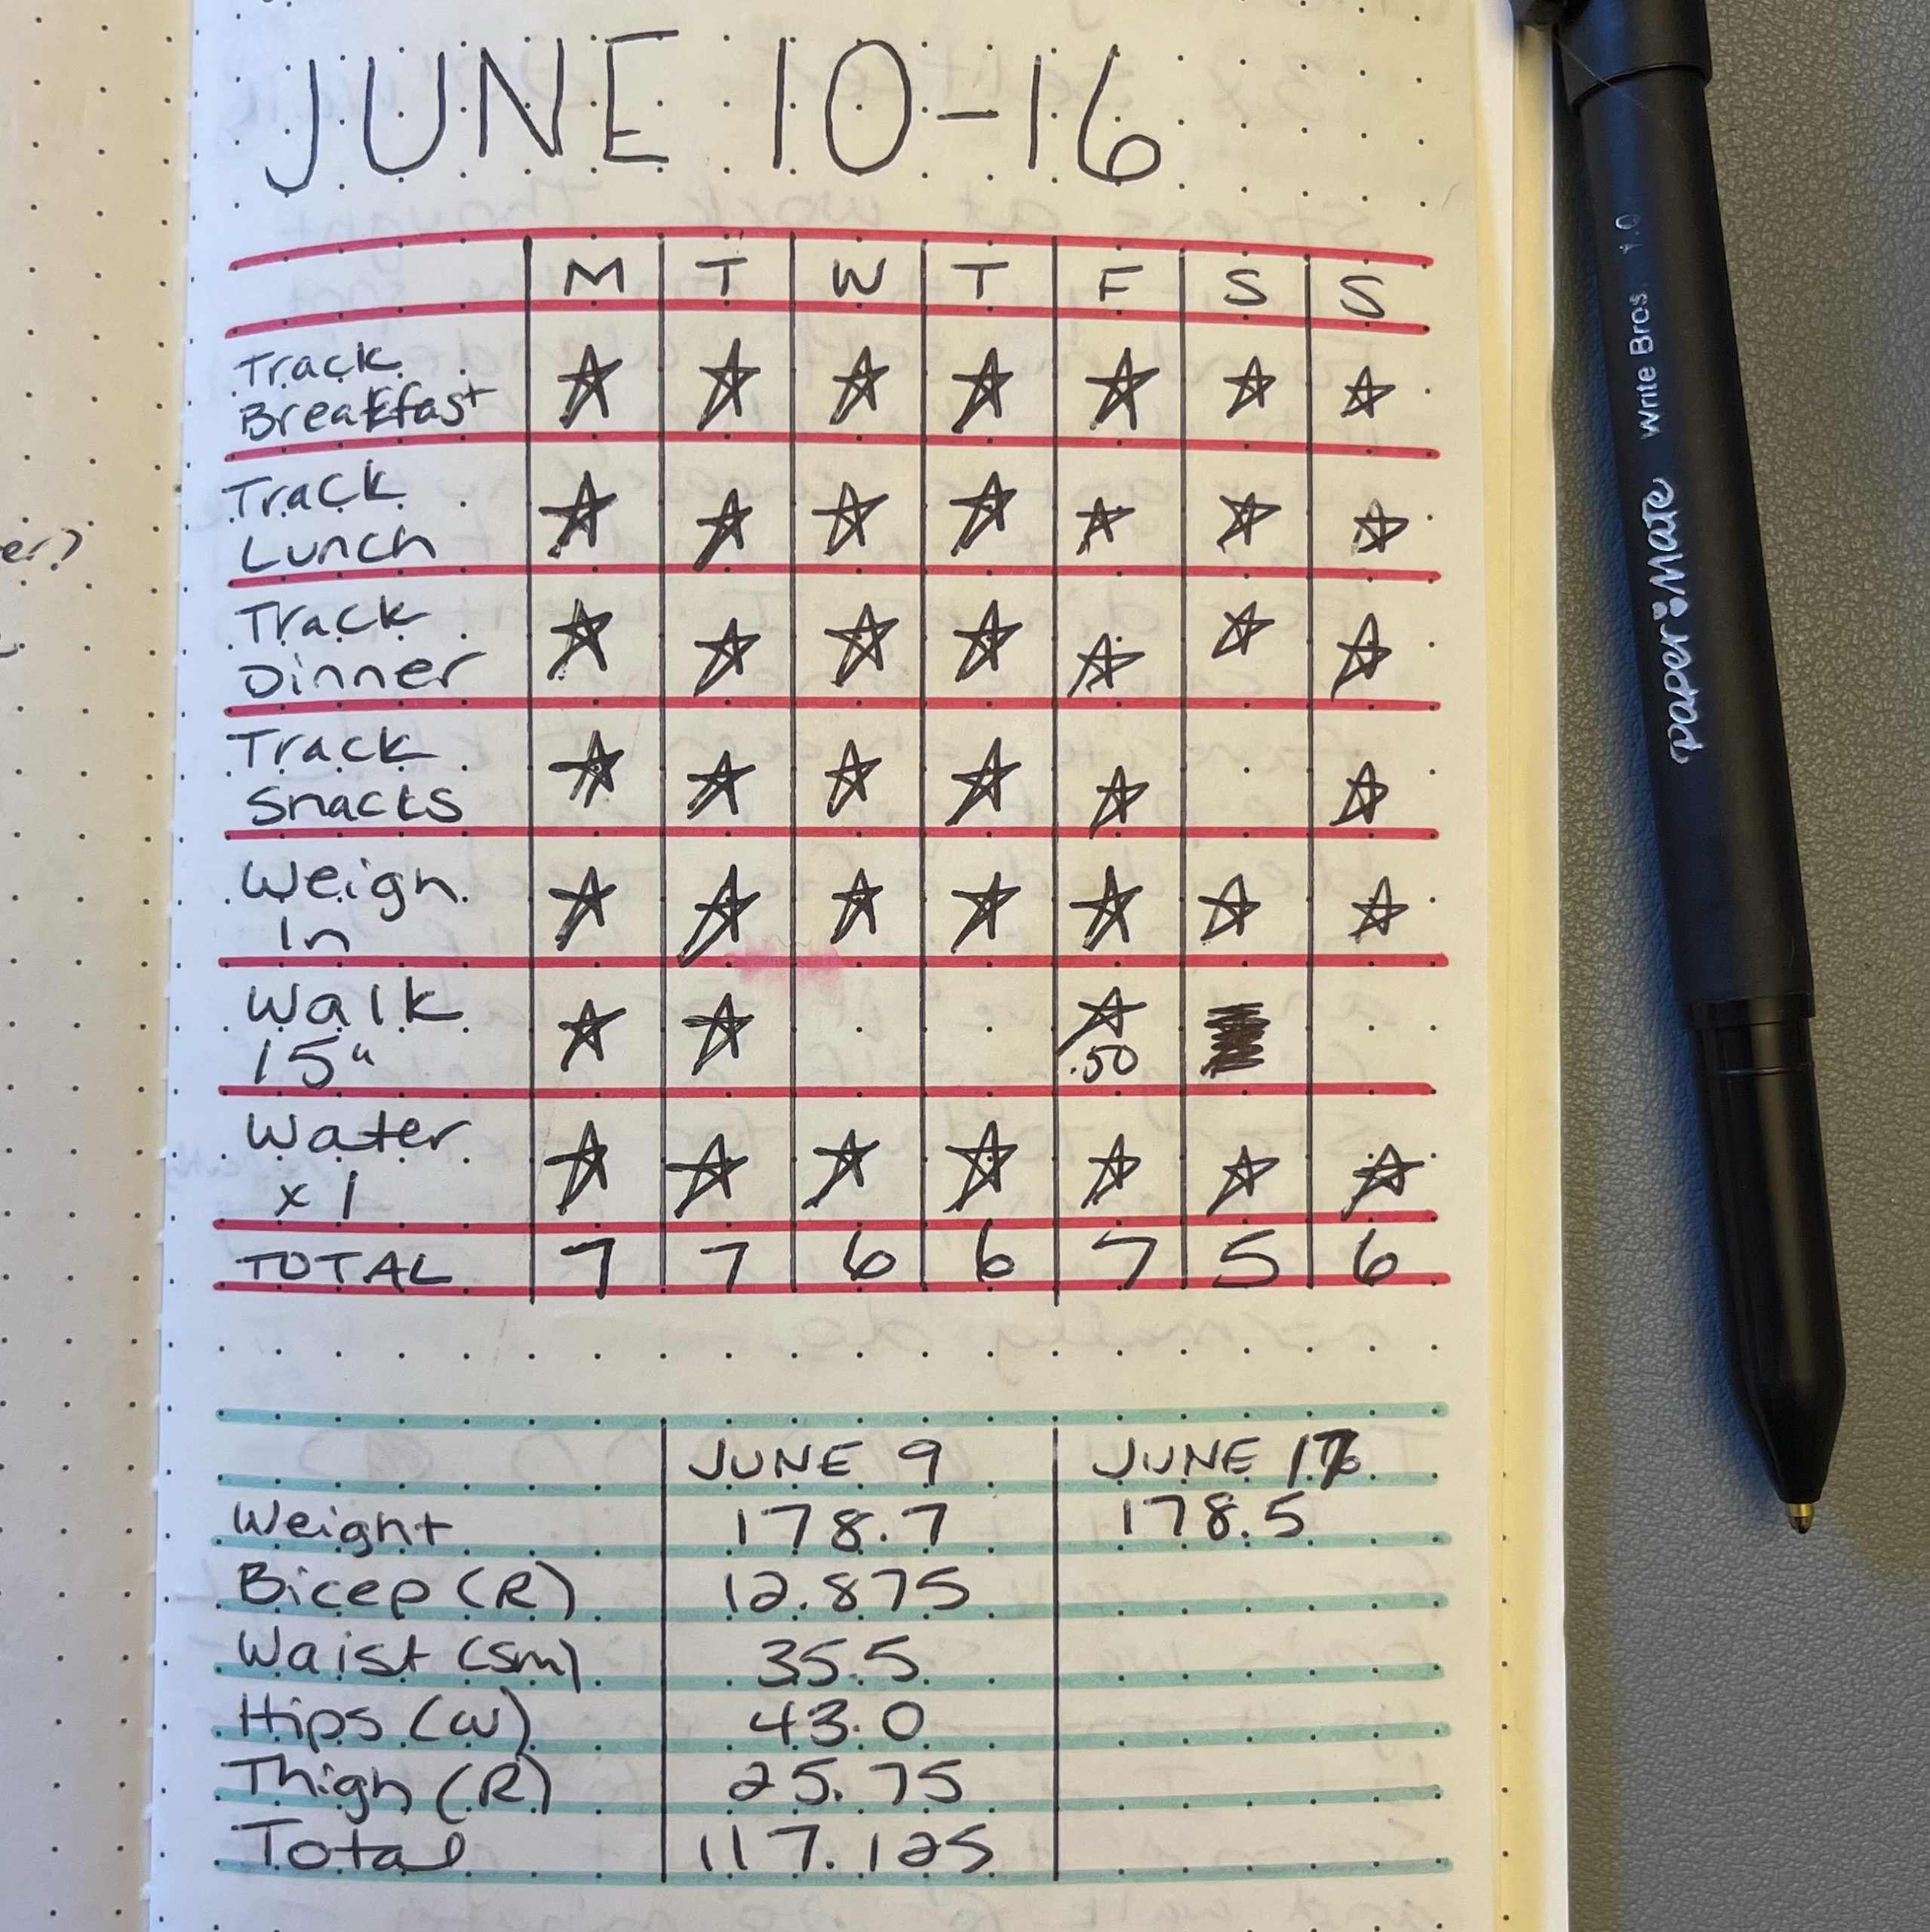 JUNE 10-16
M T W T F S S
Track
Breakfast
Track
Lunch
Track
Dinner
Track
Snacks
Weigh
In
Walk
15"
.50
Water
x 1
TOTAL 7 7 6 6 7 5 6
JUNE 9 JUNE 17
Weight 178.7 178.5
Bicep (R) 12.875
Waist (sm) 35.5
Hips (w) 43.0
Thigh (R) 25.75
Total 117.125
er)
paper mate Write Bros. 1.0